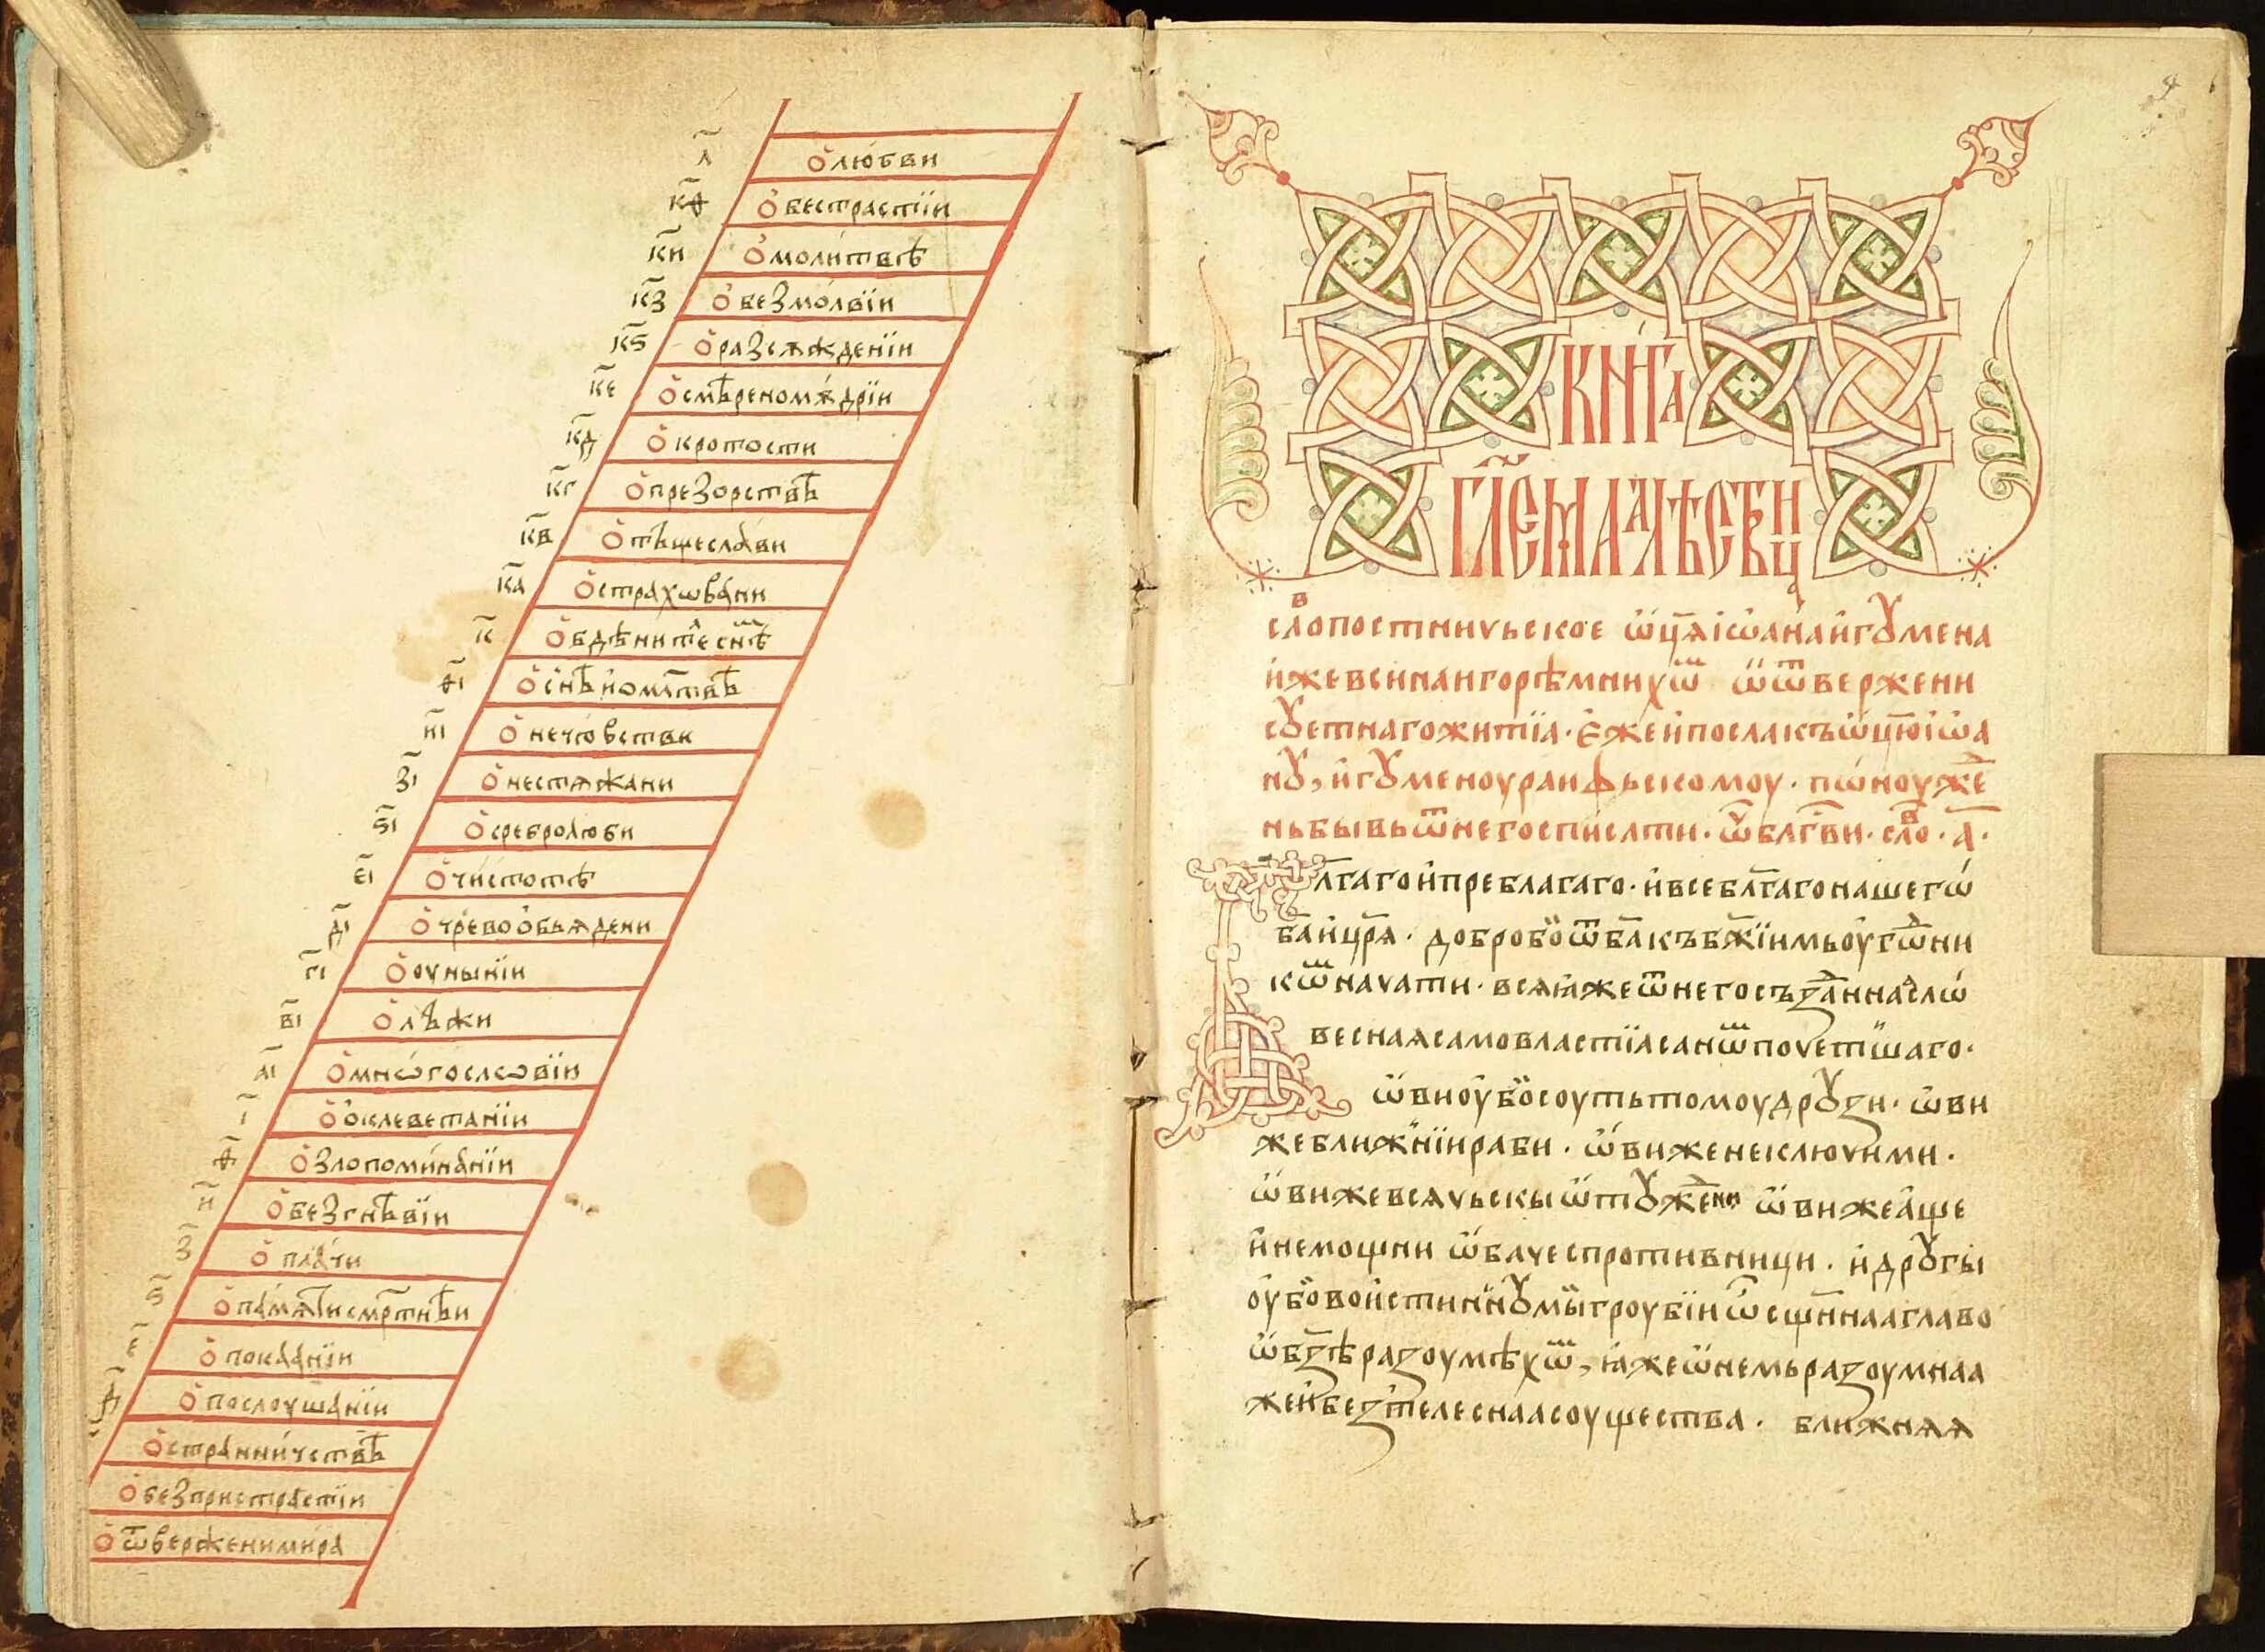 л҃ ѽ любви
к҃ѳ ѽ бестрастїи
к҃и ѽ молитвѣ
к҃з ѽ безмолвїи
к҃ѕ ѽ разсѫжденїи
к҃е ѽ смѣреномѫдрїи
к҃д ѽ кротости
к҃г ѽ презорствѣ
к҃в ѽ тъщеслави
к҃а ѽ страхѡвани
к҃ ѽ бдѣни телеснѣⷨ
ѳ҃і ѽ снѣ и ѡ млт҃вѣ
и҃і ѽ нечювстви
з҃і ѽ нестѧжани
ѕ҃і ѽ сребролюби
е҃і ѽ чистотѣ
д҃і ѽ чревоѡбьѧдени
г҃і ѽ оунынїи
в҃і ѽ лъжи
а҃і ѽ мнѡгословїи
і҃ ѽ ѡклеветанїи
ѳ҃ ѽ злопоминанїи
и҃ ѽ безгнѣвїи
з҃ ѽ плачи
ѕ҃ ѽ памѧти смр҃тнѣи
е҃ ѽ покаанїи
д҃ ѽ послоушанїи
ѽ странничествѣ
ѽ безпристрастїи
ѽ ѿвержени мира
книга
гл҃емаа лѣствиц
слоⷡ постничьское ѡц҃ѧ іѡана игꙋмена
иже в синаи горѣ мнихѡⷨ ѡ ѿвержени
сꙋетнаго житїа · еже и посла къ ѡц҃ю іѡа
нꙋ, игꙋменоу раиѳьскомоу · поноуже
нь бывь ѿ него списати · ѡⷱ бл҃гви · слоⷡ · а҃ ·
л҃гаго и преблагаго · и всебл҃гаго нашегѡ
ба҃ и цр҃ѧ · добро бо ѿ ба҃ къ бж҃їимь оугѡⷣни
кѡⷨ начати · всѧ ꙗже ѿ него съзⷣаннаа слѡ
веснаѧ самовластїа санѡⷨ почетшаго ·
ѡви оубо соуть томоу дрꙋзи · ѡви
же ближнїи раби · ѡви же неключими ·
ѡви же всѧчьскы ѿтꙋжеⷣни ѡви же аще
и немощни ѡбаче спротивници · и дрꙋгы
оубо воистиннꙋ мы гроубїи ѡ сщ҃еннаа главо
ѡ бз҃ѣ разоумѣхѡⷨ, ꙗже ѡ немь разоумнаа
же и безтелеснаа соущества · ближнѧѧ